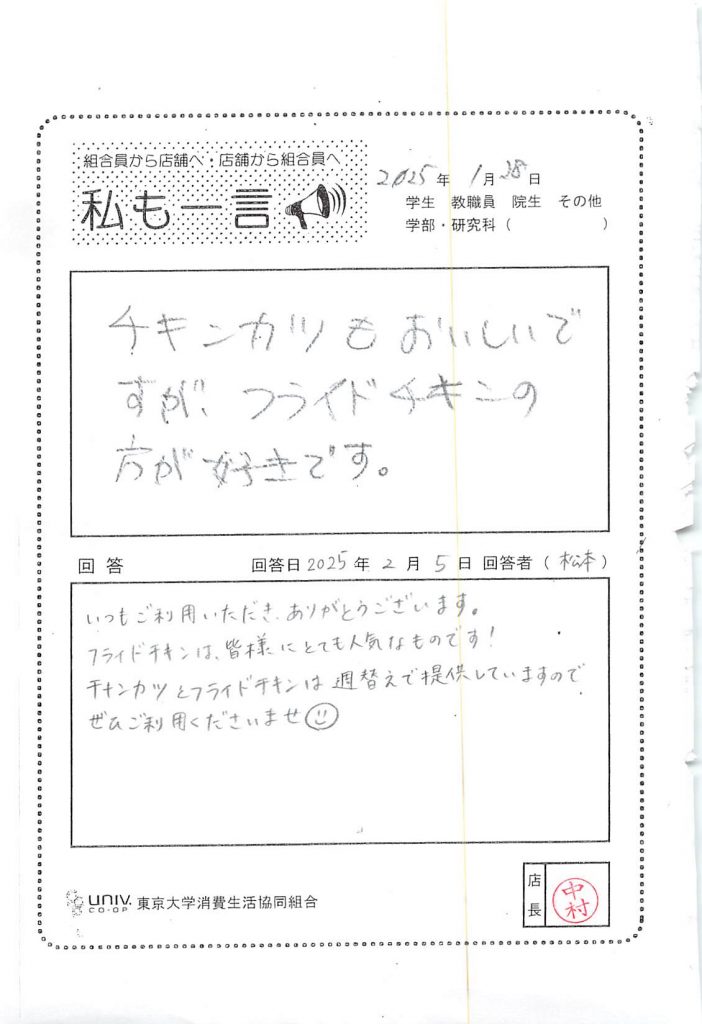 組合員から店舗へ・店舗から組合員へ
私も一言
2025年 1月28日
学生 教職員 院生 その他
学部・研究科 ( )
チキンカツもおいしいで
すが、フライドチキンの
方が好きです。
回答 回答日2025年 2月 5日 回答者 (松本)
いつもご利用いただき、ありがとうございます。
フライドチキンは、皆様にとても人気なものです!
チキンカツとフライドチキンは週替えで提供していますので
ぜひご利用くださいませ
UNIV. CO-OP 東京大学消費生活協同組合
店長
中村